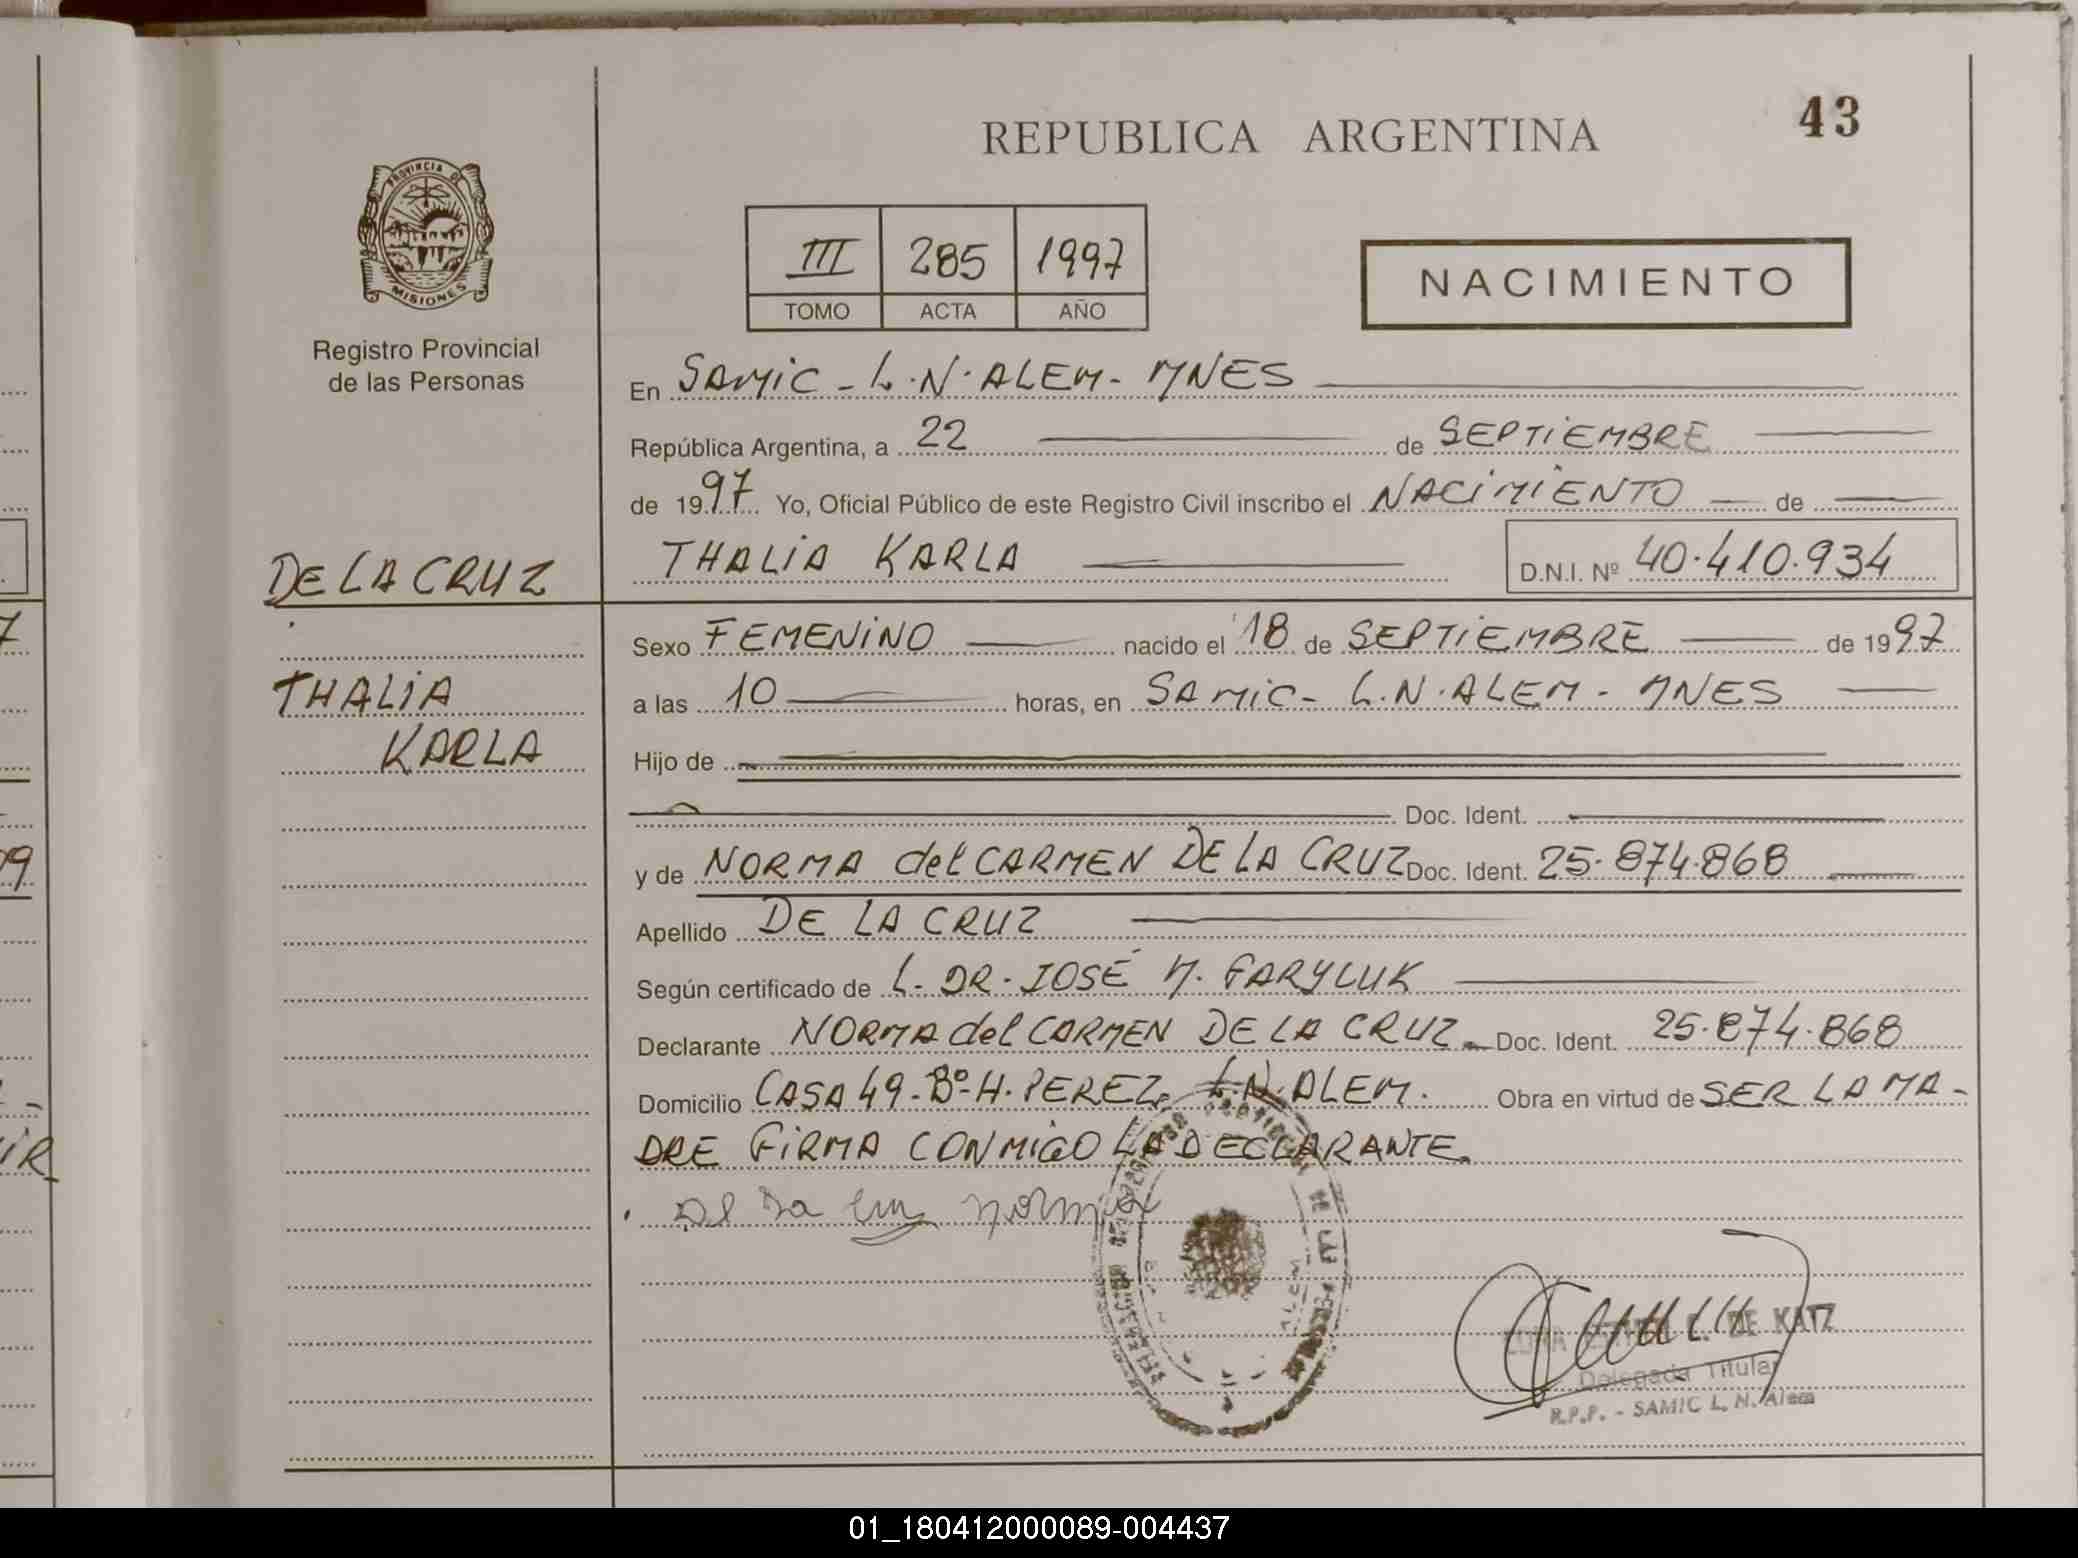 43
REPUBLICA ARGENTINA
PROVINCIA DE
MISIONES
Registro Provincial
de las Personas
III 285 1997
TOMO ACTA AÑO
NACIMIENTO
En SAMIC - L.N. ALEM - MNES
República Argentina, a 22 de SEPTIEMBRE
de 1997 Yo, Oficial Público de este Registro Civil inscribo el NACIMIENTO de
DE LA CRUZ
THALIA KARLA D.N.I. Nº 40.410.934
Sexo FEMENINO nacido el 18 de SEPTIEMBRE de 1997
THALIA
a las 10 horas, en SAMIC - L.N. ALEM - MNES
KARLA
Hijo de
Doc. Ident.
y de NORMA del CARMEN DE LA CRUZ Doc. Ident. 25.874.868
Apellido DE LA CRUZ
Según certificado de L. DR. JOSÉ M. FARYLUK
Declarante NORMA del CARMEN DE LA CRUZ Doc. Ident. 25.874.868
Domicilio CASA 49 - Bº - H. PEREZ, L.N. ALEM. Obra en virtud de SER LA MA-
DRE FIRMA CONMIGO LA DECLARANTE.
norma
DE KATZ
Delegada Titular
R.P.P. - SAMIC L. N. Alem
01_180412000089-004437